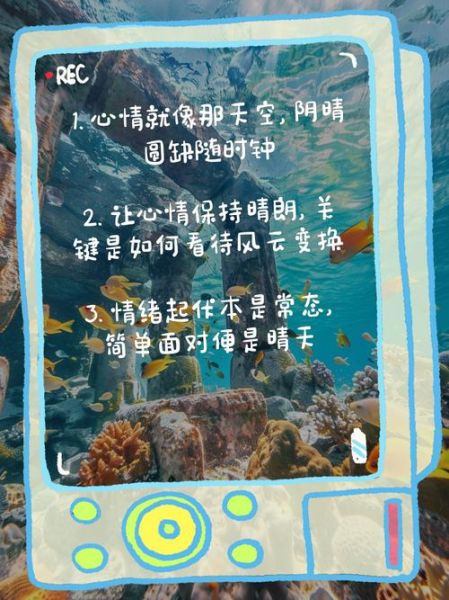 REC
1. 心情就像那天空, 阴晴
圆缺随时钟
2. 让心情保持晴朗, 关
键是如何看待风云变换
3. 情绪起伏本是常态,
简单面对便是晴天